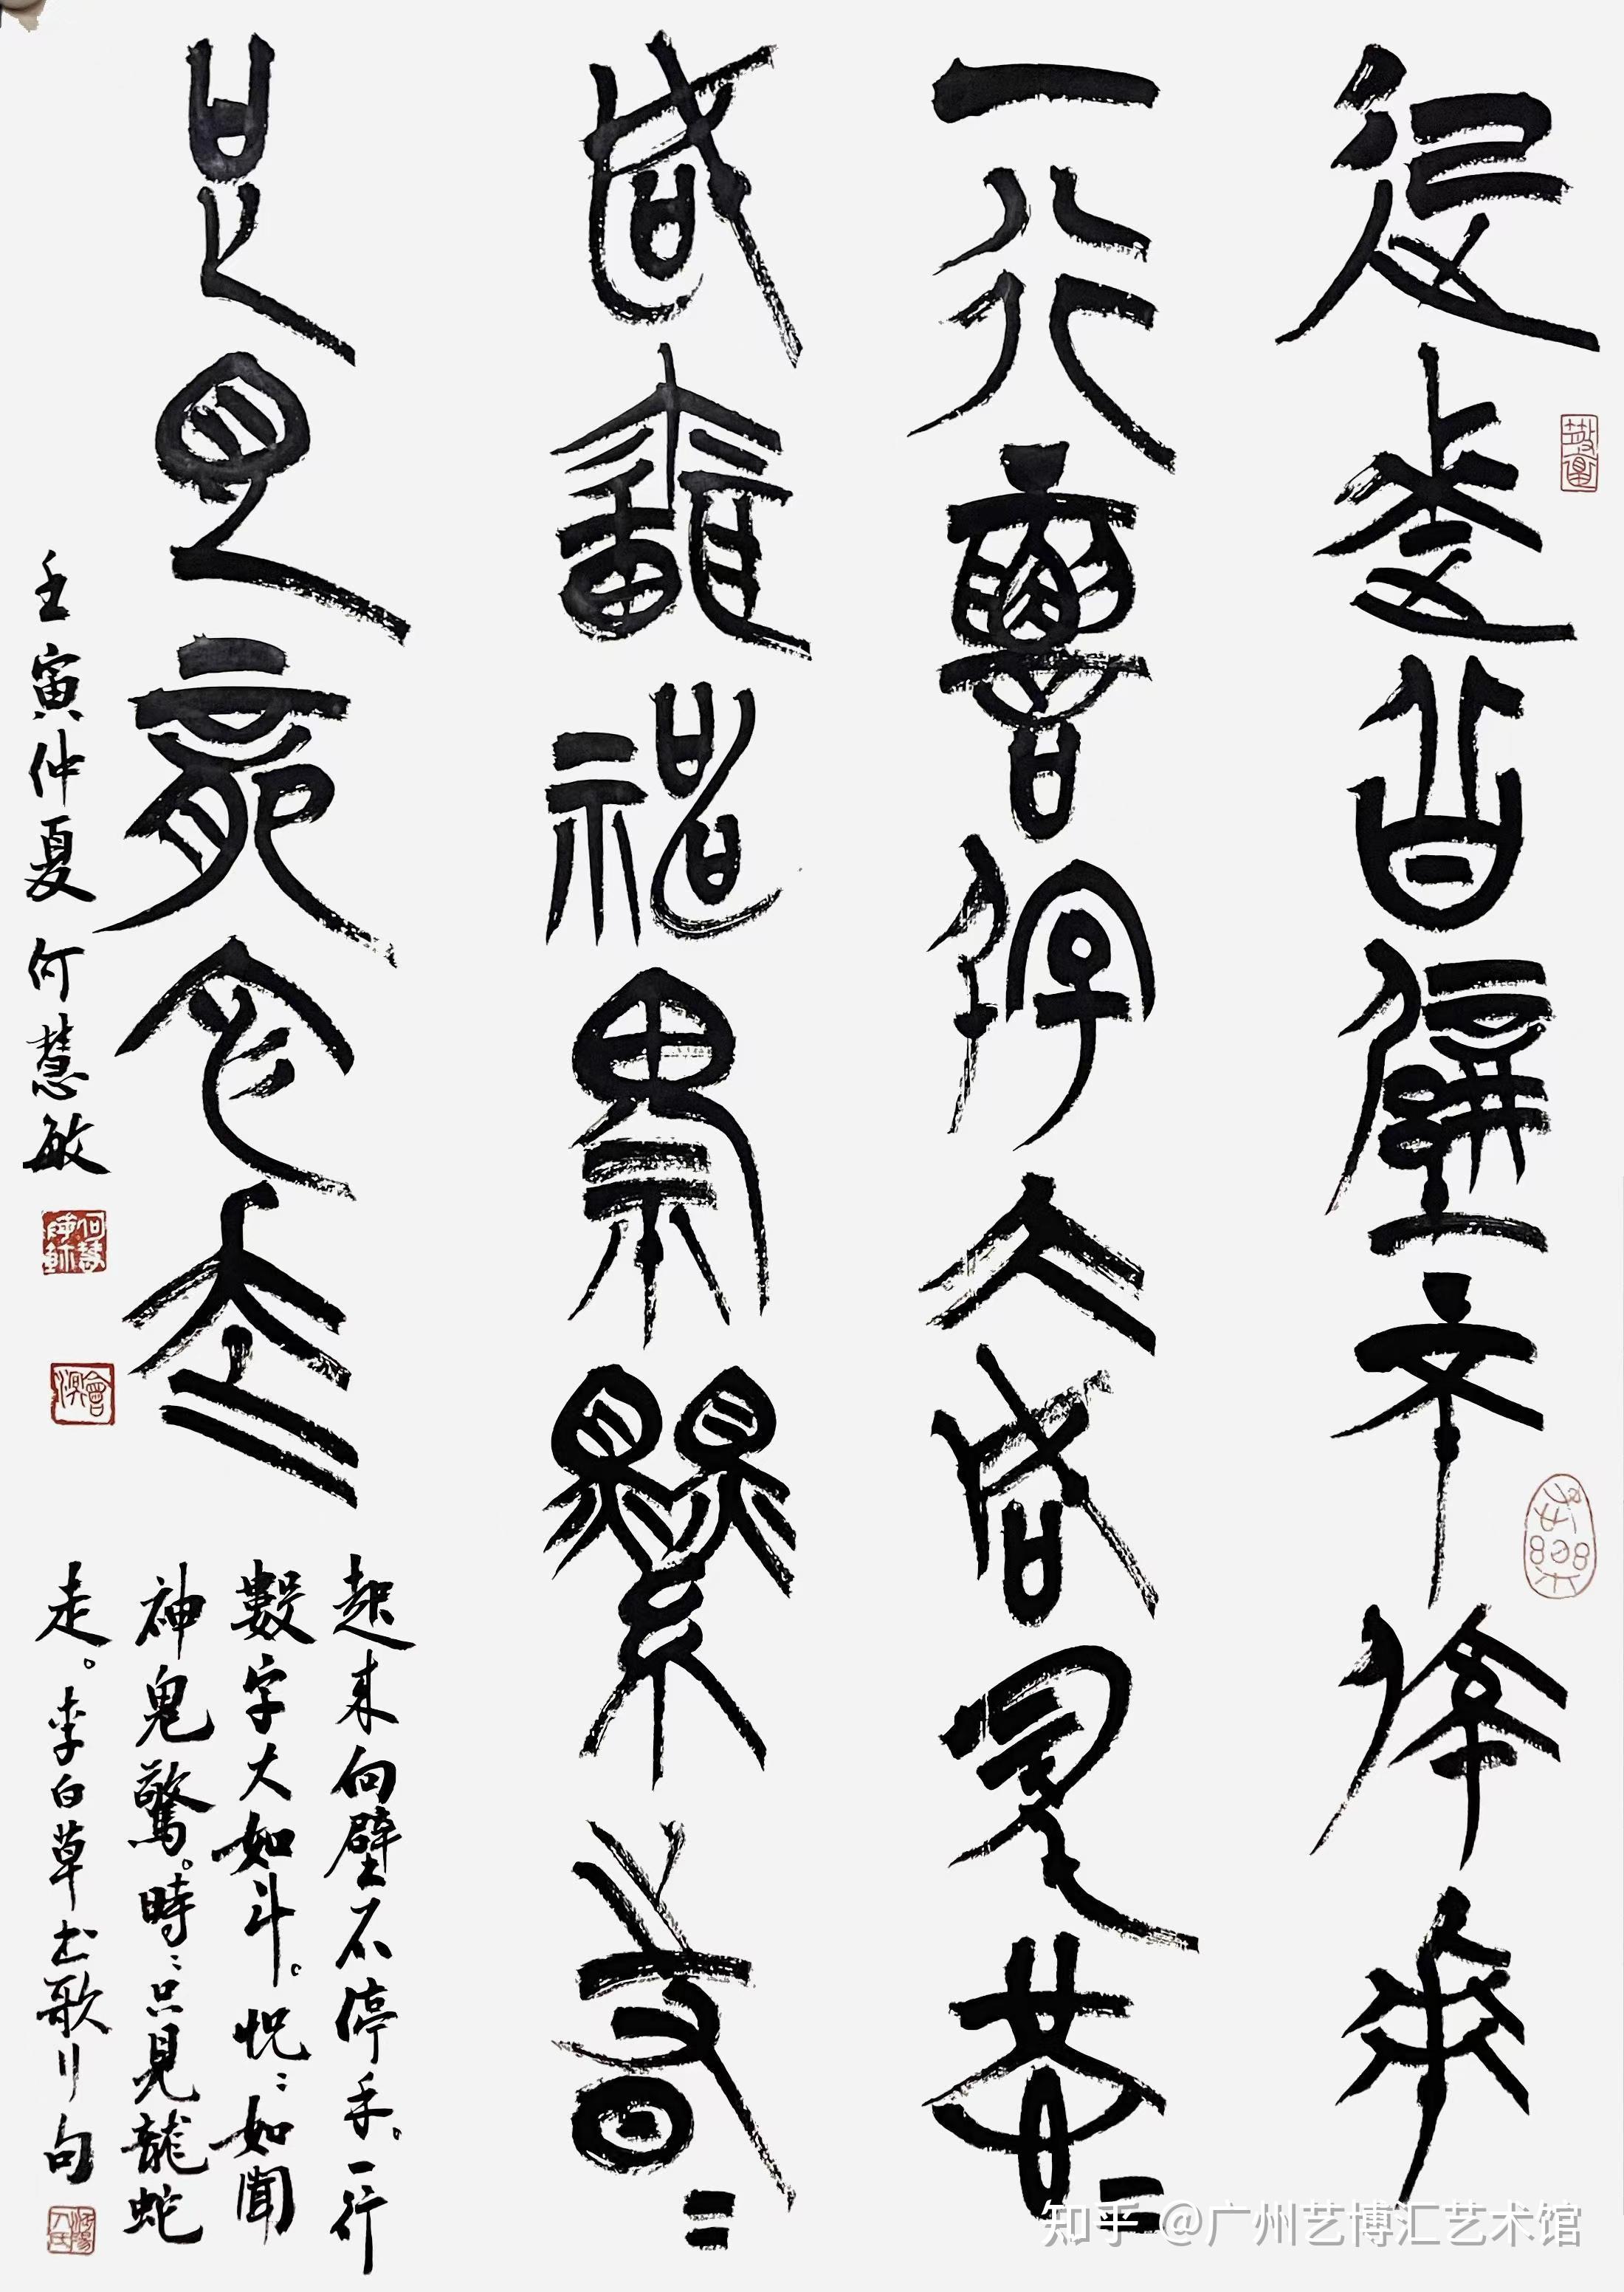 起來向壁不停手
一行數字大如斗怳〻
如聞神鬼驚時〻
只見龍蛇走
起来向壁不停手。一行
數字大如斗。怳〻如聞
神鬼驚。時〻只見龍蛇
走。李白草书歌行句
壬寅仲夏 何慧敏
知乎 @广州艺博汇艺术馆